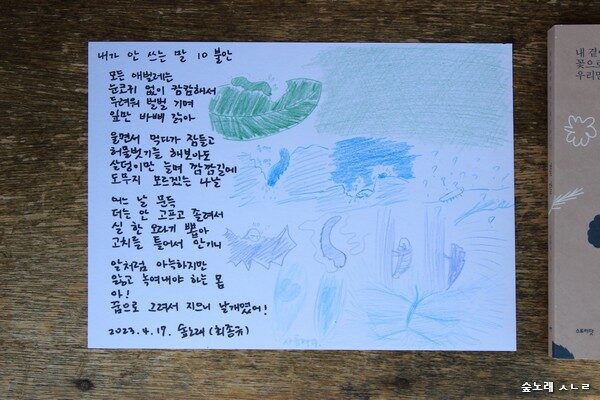 내가 안 쓰는 말 10 불안
모든 애벌레는
눈코귀 없이 캄캄해서
두려워 벌벌 기며
잎만 바삐 갉아
울면서 먹다가 잠들고
허물벗기를 해보아도
살덩이만 늘며 깜깜길에
도무지 모르겠는 나날
어느 날 문득
더는 안 고프고 졸려서
실 한 오라기 뽑아
고치를 틀어서 안기니
알처럼 아늑하지만
앓고 녹여내야 하는 몸
아!
꿈으로 그려서 지으니 날개였어!
2023.4.17. 숲노래 (최종규)
사름벼리
내 곁에
꽃으로
우리말
스토리닷
숲노래 ㅅㄴㄹ